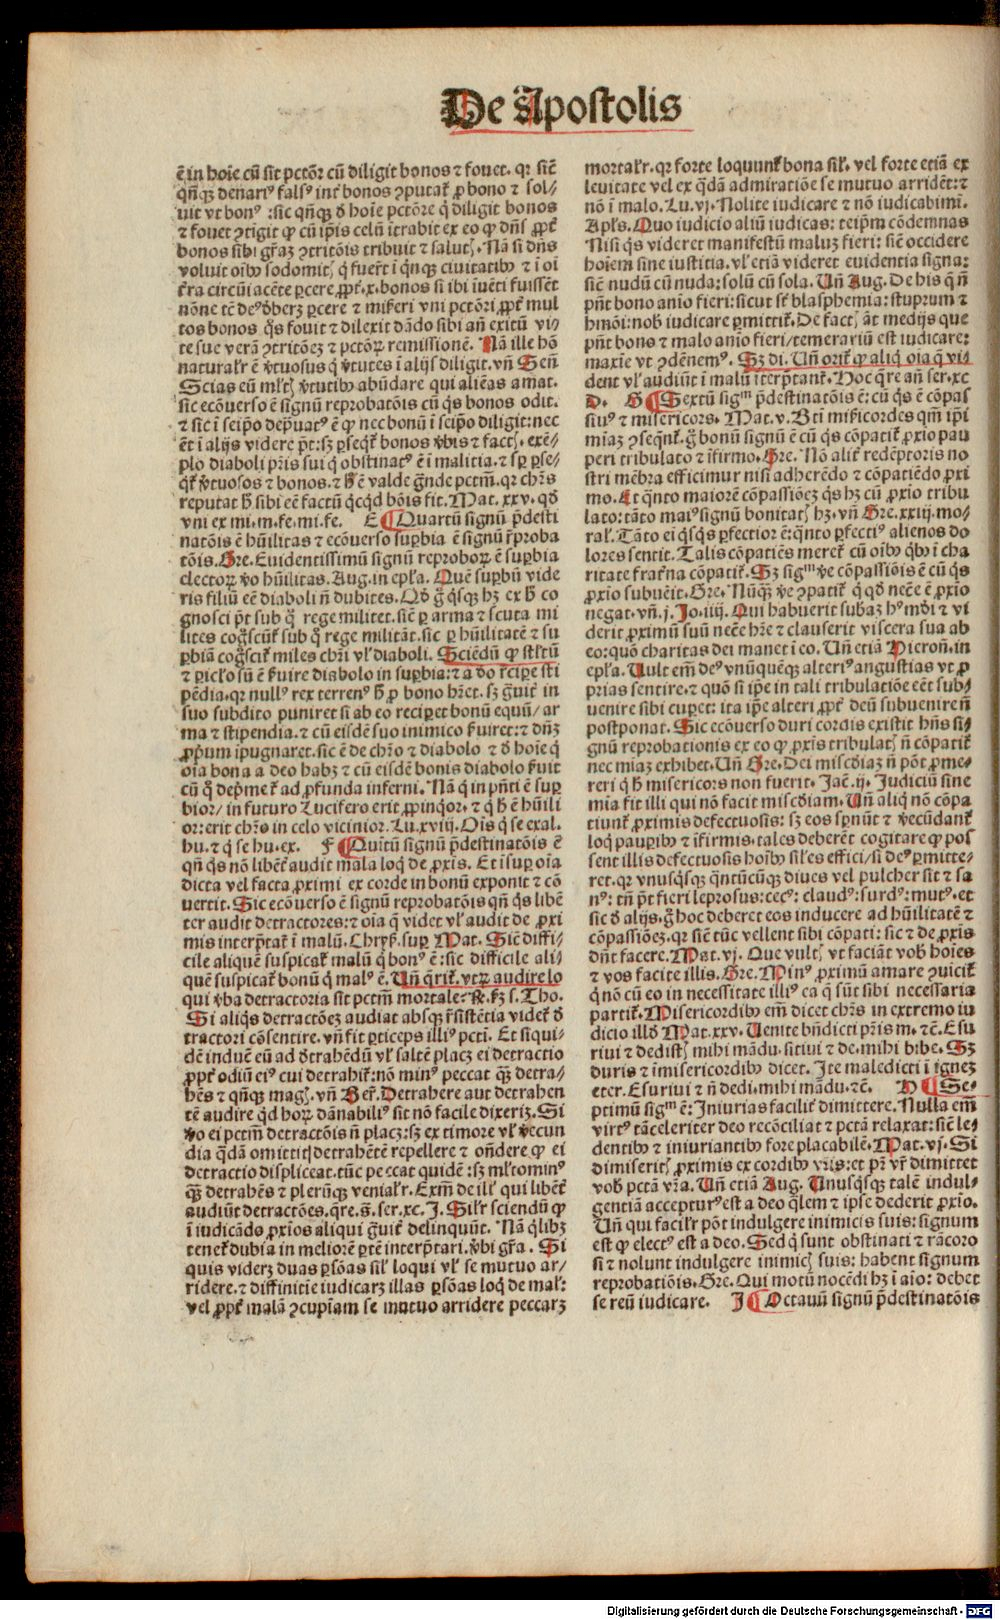 De Apostolis
ē in hoīe cū sit pctōr cū diligit bonos ⁊ fouet. qꝛ sic̄
qn̄qꝫ denariꝰ falsꝰ int̄ bonos ꝯputat̄ ꝓ bono ⁊ sol⸗
uit vt bonꝰ :sic qn̄qꝫ ꝺ hoīe pctōre q̄ diligit bonos
⁊ fouet ꝯtigit ꝙ cū ip̄is celū ītrabit ex eo ꝙ dn̄s ꝓpt̄
bonos sibi gr̄az ꝯtritōis tribuit ⁊ salutꝭ. Nā si dn̄s
voluit oībꝰ sodomitꝭ q̄ fuer̄t ī qn̄qꝫ ciuitatibꝰ ⁊ ī oī
t̄ra circūiacēte ꝑcere ꝓpt̄.x.bonos si ibi iuēti fuissēt
nōne tē deꝰ ꝺberꝫ ꝑcere ⁊ miẜeri vni pctōri ꝓpt̄ mul
tos bonos q̄s fouit ⁊ dilexit dādo sibi an̄ exitū vi⸗
te sue verā ꝯtritōeꝫ ⁊ pctōꝝ remissionē. Nā ille hō
naturalr̄ ē v̄tuosus q̄ v̄tutes ī alijs diligit. vn̄ Sen̄
Scias eū ml̄tꝭ v̄tutibꝰ abūdare qui aliēas amat.
sic ecōuerso ē signū reprobatōis cū q̄s bonos odit.
⁊ sic ī seip̄o dep̄uatꝰ ē ꝙ nec bonū ī seip̄o diligit:nec
ēt ī alijs videre pt̄:sꝫ ꝑseqt̄ bonos v̄bis ⁊ factꝭ. exē⸗
plo diaboli pr̄is sui q̄ obstinatꝰ ē ī malitia. ⁊ sꝑ ꝑse⸗
qt̄ v̄tuosos ⁊ bonos. ⁊ ħ ē valde gn̄de pctm̄. qꝛ chrs
reputat ħ sibi eē factū qcqd bōis fit. Mat. xxv. qd
vni ex mi.m.fe.mi.fe. E ¶ Quartū signū p̄desti
natōis ē hūilitas ⁊ ecōuerso suꝑbia ē signū r̄proba
tōis. Gre. Euidentissimū signū reproboꝝ ē suꝑbia
electoꝝ v̄o hūilitas. Aug. in epl̄a. Quē suꝑbū vide
ris filiū eē diaboli n̄ dubites. Qd g̊ qsqꝫ hꝫ ex ħ co
gnosci pt̄ sub q̄ rege militet. sic̄ ꝑ arma ⁊ scuta mi
lites cogsc̄ut̄ sub q̄ rege militāt. sic ꝑ hūilitatē ⁊ su
ꝑbiā cogscit̄ miles chr̄i vl̄ diaboli. Sciēdū ꝙ stl̄tū
⁊ ꝑicl̄osū ē ẜuire diabolo in suꝑbia: ⁊ a do r̄ciꝑe sti
pēdia. qꝛ nullꝰ rex terrenꝰ ħ ꝓ bono hr̄et. sꝫ g̊uit̄ in
suo subdito puniret si ab eo reciꝑet bonū equū/ ar
ma ⁊ stipendia. ⁊ cū eisdē suo inimico ẜuiret: ⁊ dn̄ꝫ
ꝓprium ipugnaret. sic ē de chr̄o ⁊ diabolo ⁊ ꝺ hoīe q̄
oīa bona a deo habꝫ ⁊ cū eisdē bonis diabolo ẜuit
cū q̄ dep̄met̄ ad ꝓfunda inferni. Nā q̄ in pn̄ti ē suꝑ
bior/ in futuro Lucifero erit ꝓpinqꝰor. ⁊ q̄ ħ ē hūili
or: erit chr̄o in celo vicinior. Lu. xviij. Oīs q̄ se exal.
hu. ⁊ q̄ se hu. ex. F ¶ Quītū signū p̄destinatōis ē
qn̄ q̄s nō libēt̄ audit mala loq̄ de ꝓxīs. Et īsuꝑ oīa
dicta vel facta ꝓximi ex corde in bonū exponit ⁊ cō
uertit. Sic ecōuerso ē signū reprobatōis qn̄ q̄s libē
ter audit detractores: ⁊ oīa q̄ videt vl̄ audit de ꝓxi
mis interp̄tat̄ ī malū. Chryẜ. suꝑ Mat. Sic̄ diffi⸗
cile aliquē suspicat̄ malū q̄ bonꝰ ē: sic difficile ali⸗
quē suspicat̄ bonū q̄ malꝰ ē. Un̄ q̄rit̄. vtꝝ audire lo
qui v̄ba detractoria sit pctm̄ mortale. ℟. ẜꝫ s. Tho.
Si aliq̄s detractōeꝫ audiat absqꝫ r̄sistētia videt̄ ꝺ
tractori cōsentire. vn̄ fit ꝑticeps illiꝰ pcti. Et siqui⸗
dē induē eū ad ꝺtrahēdū vl̄ saltē placꝫ ei detractio
ꝓpt̄ odiū eiꝰ cui detrahit̄:nō minꝰ peccat qꝫ detra⸗
hēs ⁊ qn̄qꝫ magꝭ. vn̄ Ber̄. Detrahere aut detrahen
tē audire qd hoꝝ dānabiliꝰ sit nō facile dixeriꝫ. Si
v̄o ei pctm̄ detractōis n̄ placꝫ:sꝫ ex timore vl̄ v̄ecun
dia qdā omittitꝭ detrahētē repellere ⁊ on̄dere ꝙ ei
detractio displiceat. tūc peccat quidē :sꝫ ml̄tominꝰ
qꝫ detrahēs ⁊ pleruqꝫ venialr̄. Exm̄ de ill̓ qui libēt̄
audiūt detractōes. qre. s̄. ser. xc. J. Sil̓r sciendū ꝙ
ī iudicādo ꝓxīos aliqui g̊uit̄ delinquūt. Nā qlibꝫ
tenet̄ dubia in meliorē ꝑtē interp̄tari. v̄bi gr̄a. Si
quis videꝫ duas ꝑsōas sil̓ loqui vl̄ se mutuo ar⸗
ridere. ⁊ diffinitie iudicaꝫ illas ꝑsōas loq̄ de mal̓:
vel ꝓpt̄ malā ꝯcupiam se mutuo arridere peccaꝫ
mortalr̄. qꝛ forte loquunt̄ bona sil̓. vel forte etiā ex
leuitate vel ex qdā admiratiōe se mutuo arridēt: ⁊
nō ī malo. Lu. vj. Nolite iudicare ⁊ nō iudicabimī.
Apl̄s. Quo iudicio aliū iudicas: teip̄m cōdemnas
Nisi q̄s videret manifestū maluꝫ fieri: sic̄ occidere
hoīem sine iustitia. vl̄ etiā videret euidentia signa:
sic̄ nudū cū nuda: solū cū sola. Un̄ Aug. De his q̄ n̄
pn̄t bono anīo fieri: sicut st̄ blasphemia: stuprum ⁊
hmōi: nobꝭ iudicare ꝑmittit̄. De factꝭ āt medijs que
pn̄t bono ⁊ malo anīo fieri/ temerariū est iudicare:
maxīe vt ꝯdēnemꝰ. Sꝫ di. Un̄ orit̄ ꝙ aliq̄ oīa q̄ vi⸗
dent vl̄ audiūt ī malū īterp̄tant̄. Hoc qre an̄ ser. xc
D. G ¶ Sextū sigᵐ p̄destinatōis ē: cū q̄s ē cōpas
siuꝰ ⁊ misericors. Mat. v. Bti mīẜicordes qm̄ ip̄i
mīaꝫ ꝯseqnt̄. g̊ bonū signū ē cū q̄s cōpatit̄ ꝓxīo pau
peri tribulato ⁊ īfirmo. Gre. Nō alit̄ redēptoris no
stri mēbra efficimur nisi adherēdo ⁊ cōpatiēdo ꝓxi
mo. Et qnto maiorē cōpassiōeꝫ q̄s hꝫ cū ꝓxīo tribu
lato: tāto maiꝰ signū bonitatꝭ hꝫ. vn̄ Gre. xxiij. mo⸗
ral̓. Tāto ei qsqs ꝑfectior ē: qnto ꝑfectiꝰ alienos do
lores sentit. Talis cōpatiēs meret̄ cū oībꝰ qbꝰ ī cha
ritate frat̄na cōpatit̄. Sꝫ sigᵐ v̄e cōpassiōis ē cū q̄s
ꝓxīo subuēit. Gre. Nūqꝫ v̄e ꝯpatit̄ q̄ qd necē ē ꝓxīo
negat. vn̄. j. Jo. iiij. Qui habuerit subaꝫ hꝰ mūdi ⁊ vi
derit ꝓximū suū necē hr̄e ⁊ clauserit viscera sua ab
eo: quō charitas dei manet ī eo. Un̄ etiā Hieron. in
epl̄a. Uult em̄ deꝰ vnūquēqꝫ alteriꝰ angustias vt ꝓ
prias sentire. ⁊ quō si ip̄e in tali tribulatiōe eēt sub⸗
uenire sibi cuꝑet: ita ip̄e alteri ꝓpt̄ deū subuenire n̄
postponat. Sic ecōuerso duri cordis existit hn̄s si⸗
gnū reprobationis ex eo ꝙ ꝓxīs tribulatꝭ n̄ cōpatit̄
nec mīaꝫ exhibet. Un̄ Gre. Dei misc̄diaꝫ n̄ pōt ꝓme⸗
reri q̄ ħ misericors non fuerit. Jac̄. ij. Judiciū sine
mīa fit illi qui nō facit misc̄diam. Un̄ aliq̄ nō cōpa
tiunt̄ ꝓximis defectuosis: sꝫ eos sꝑnūt ⁊ v̄ecūdant̄
loq̄ pauꝑibꝰ ⁊ īfirmis. tales deberēt cogitare ꝙ pos
sent illis defectuosis hoībꝰ sil̓es effici/ si deꝰ ꝑmitte⸗
ret. qꝛ vnusqsqꝫ qntūcūqꝫ diues vel pulcher sit ⁊ sa
nꝰ: tn̄ pt̄ fieri leprosus: cecꝰ: claudꝰ: surdꝰ: mutꝰ. et
sic ꝺ alijs. g̊ hoc deberet eos inducere ad hūilitatē ⁊
cōpassiōeꝫ. qꝛ sic̄ tūc vellent sibi cōpati: sic ⁊ de ꝓxīs
dn̄t facere. Mat. vj. Que vultꝭ vt faciāt vobꝭ hoīes
⁊ vos facite illis. Gre. Minꝰ ꝓximū amare ꝯuicit̄
q̄ nō cū eo in necessitate illiꝰ ea q̄ sūt sibi necessaria
partit̄. Misericordibꝰ em̄ dicet chr̄s in extremo iu
dicio illꝺ Mat. xxv. Uenite bn̄dicti pr̄is m. ⁊c̄. Esu
riui ⁊ dedistꝭ mihi mādu. sitiui ⁊ de. mihi bibe. Sꝫ
duris ⁊ īmisericordibꝰ dicet. Ite maledicti ī igneꝫ
eter. Esuriui ⁊ n̄ dedi. mihi mādu. ⁊c̄. H ¶ Se⸗
ptimū sigᵐ ē: Iniurias facilit̄ dimittere. Nulla em̄
virtꝰ tāceleriter deo recōciliat ⁊ pctā relaxat: sic̄ le⸗
dentibꝰ ⁊ iniuriantibꝰ fore placabilē. Mat. vj. Si
dimiseritꝭ ꝓximis ex cordibꝰ vr̄is: et pr̄ vr̄ dimittet
vobꝭ pctā vr̄a. Un̄ etiā Aug. Unusqsqꝫ talē indul⸗
gentiā accepturꝰ est a deo qlem ⁊ ipse dederit ꝓxīo.
Un̄ qui facilr̄ pōt indulgere inimicis suis: signum
est ꝙ electꝰ est a deo. Sed q̄ sunt obstinati ⁊ rācoro
si ⁊ nolunt indulgere inimicꝭ suis: habent signum
reprobatiōis. Gre. Qui motū nocēdi hꝫ ī aīo: debet
se reū iudicare. J ¶ Octauū signū p̄destinatōis
Digitalisierung gefördert durch die Deutsche Forschungsgemeinschaft - DFG